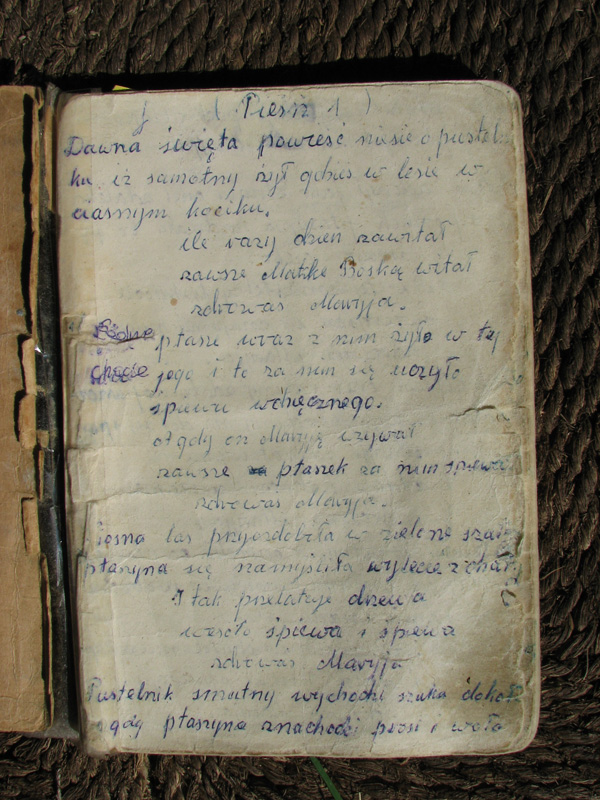 ( Pieśń 1 )
Dawna święta powieść niesie o pusteln
ku iż samotny żył gdzieś w lesie w
ciasnym kąciku.
ile razy dzień zawitał
zawsze Matkę Boską witał
zdrowaś Maryja.
ptasze wraz z nim żyło w tej
chącie jego i te za nim się uczyło
śpiewu wdzięcznego.
ot gdy on Maryję wzywał
zawsze ptaszek za nim śpiewa
zdrowaś Maryja.
iosna las przyozdobiła w zielone sza
ptaszyna się namyśliła wylecieć z chat
I tak przelatuje drzewa
wesoło śpiewa i śpiewa
zdrowaś Maryja
Pustelnik smutny wychodzi szuka dokoł
gdy ptaszyne znachodzi prosi i woła